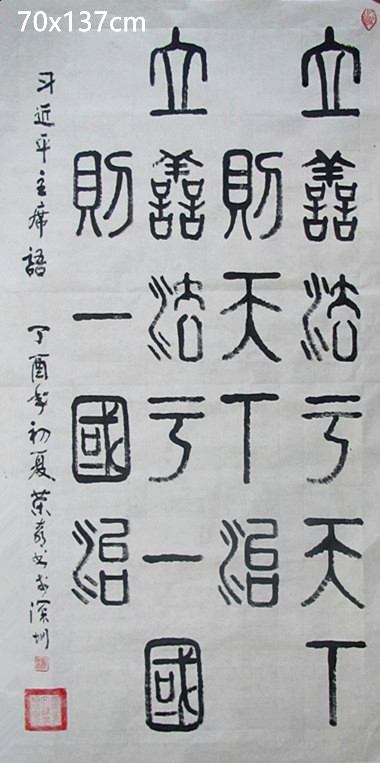 70x137cm
立善法于天下
則天下治
立善法于一國
則一國治
习近平主席語 丁酉年初夏 荣 书于深圳